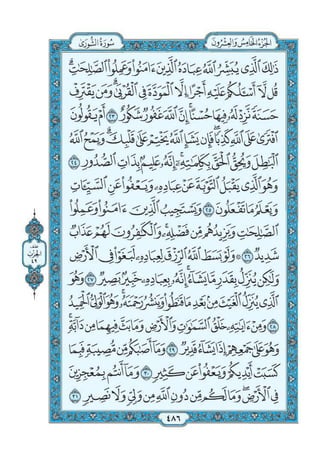 الجزء الخامس والعشرون
سورة الشورى
ذَٰلِكَ ٱلَّذِى يُبَشِّرُ ٱللَّهُ عِبَادَهُ ٱلَّذِينَ ءَامَنُوا۟ وَعَمِلُوا۟ ٱلصَّٰلِحَٰتِۗ
قُل لَّآ أَسْـَٔلُكُمْ عَلَيْهِ أَجْرًا إِلَّا ٱلْمَوَدَّةَ فِى ٱلْقُرْبَىٰۗ وَمَن يَقْتَرِفْ
حَسَنَةً نَّزِدْ لَهُۥ فِيهَا حُسْنًاۚ إِنَّ ٱللَّهَ غَفُورٌ شَكُورٌ ٢٣ أَمْ يَقُولُونَ
ٱفْتَرَىٰ عَلَى ٱللَّهِ كَذِبًاۖ فَإِن يَشَإِ ٱللَّهُ يَخْتِمْ عَلَىٰ قَلْبِكَۗ وَيَمْحُ ٱللَّهُ
ٱلْبَٰطِلَ وَيُحِقُّ ٱلْحَقَّ بِكَلِمَٰتِهِۦٓۚ إِنَّهُۥ عَلِيمٌۢ بِذَاتِ ٱلصُّدُورِ ٢٤
وَهُوَ ٱلَّذِى يَقْبَلُ ٱلتَّوْبَةَ عَنْ عِبَادِهِۦ وَيَعْفُوا۟ عَنِ ٱلسَّيِّـَٔاتِ
وَيَعْلَمُ مَا تَفْعَلُونَ ٢٥ وَيَسْتَجِيبُ ٱلَّذِينَ ءَامَنُوا۟ وَعَمِلُوا۟
ٱلصَّٰلِحَٰتِ وَيَزِيدُهُم مِّن فَضْلِهِۦۚ وَٱلْكَٰفِرُونَ لَهُمْ عَذَابٌ
شَدِيدٌ ٢٦ وَلَوْ بَسَطَ ٱللَّهُ ٱلرِّزْقَ لِعِبَادِهِۦ لَبَغَوْا۟ فِى ٱلْأَرْضِ
وَلَٰكِن يُنَزِّلُ بِقَدَرٍ مَّا يَشَآءُۚ إِنَّهُۥ بِعِبَادِهِۦ خَبِيرٌۢ بَصِيرٌ ٢٧ وَهُوَ
ٱلَّذِى يُنَزِّلُ ٱلْغَيْثَ مِنۢ بَعْدِ مَا قَنَطُوا۟ وَيَنشُرُ رَحْمَتَهُۥۚ وَهُوَ ٱلْوَلِىُّ ٱلْحَمِيدُ
٢٨ وَمِنْ ءَايَٰتِهِۦ خَلْقُ ٱلسَّمَٰوَٰتِ وَٱلْأَرْضِ وَمَا بَثَّ فِيهِمَا مِن دَآبَّةٍۚ
وَهُوَ عَلَىٰ جَمْعِهِمْ إِذَا يَشَآءُ قَدِيرٌ ٢٩ وَمَآ أَصَٰبَكُم مِّن مُّصِيبَةٍ فَبِمَا
كَسَبَتْ أَيْدِيكُمْ وَيَعْفُوا۟ عَن كَثِيرٍ ٣٠ وَمَآ أَنتُم بِمُعْجِزِينَ
فِى ٱلْأَرْضِۖ وَمَا لَكُم مِّن دُونِ ٱللَّهِ مِن وَلِىٍّ وَلَا نَصِيرٍ ٣١
الحزب
٤٩
٤٨٦